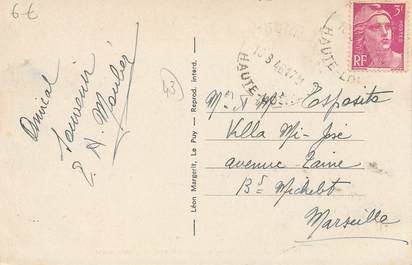 6€
Amical
Souvenir
43
Léon Margerit, Le Puy — Reprod. interd.
HAUTE
3F
POSTES
RF
HAUTE-LOIRE
Mr & Mme Esposito
Villa Mi-José
avenue Taine
Bd Michelet
Marseille